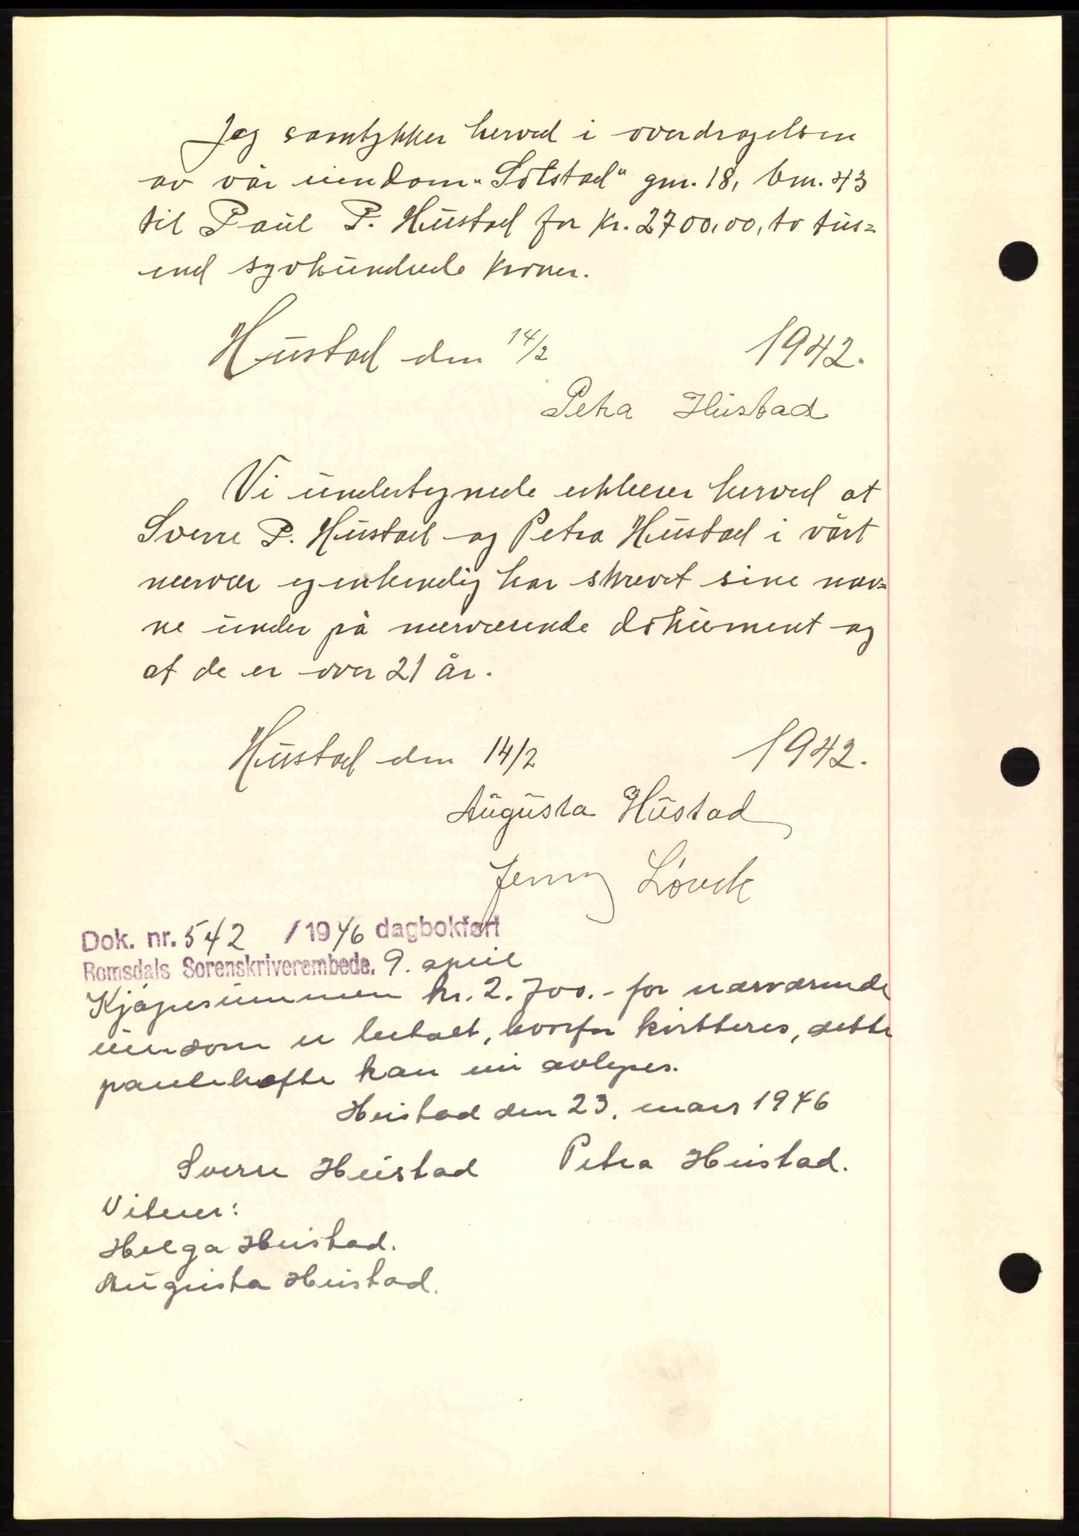 Jeg samtykker herved i overdragelsen
av vår eiendom "Solstad" gnr. 18, bnr. 43
til Paul P. Hustad for kr. 2700,00, to tus=
end syvhundrede kroner.
Hustad den 14/2 1942.
Petra Hustad
Vi undertegnede erklærer herved at
Sverre P. Hustad og Petra Hustad i vårt
nærvær egenhendig har skrevet sine nav=
ne under på nærværende dokument og
at de er over 21 år.
Hustad den 14/2 1942.
Augusta Hustad
Jenny Løvik
Dok. nr. 542 / 1946 dagbokført
Romsdals Sorenskriverembede. 9. april
Kjøpesummen kr. 2.700.- for nærværende
eiendom er betalt, hvorfor kvitteres, dette
panteheftte kan nu avlyses.
Hustad den 23. mars 1946
Sverre Hustad Petra Hustad.
Vitner:
Helga Hustad.
Augusta Hustad.